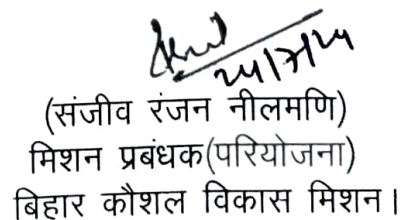 24/7/24
(संजीव रंजन नीलमणि)
मिशन प्रबंधक(परियोजना)
बिहार कौशल विकास मिशन।